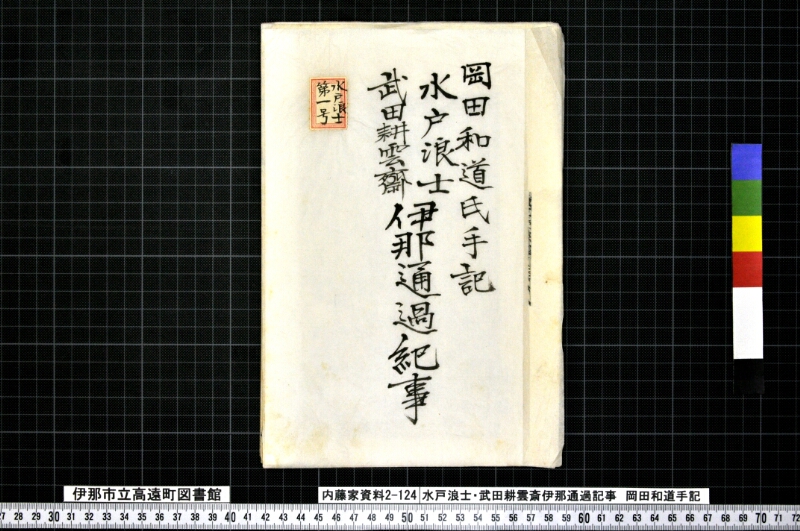 岡田和道氏手記
水戸浪士
武田耕雲齋
伊那通過紀事
水戸浪士
第一号
伊那市立高遠町図書館
内藤家資料2-124 水戸浪士・武田耕雲斎伊那通過記事 岡田和道手記
27 28 29 30 31 32 33 34 35 36 37 38 39 40 41 42 43 44 45 46 47 48 49 50 51 52 53 54 55 56 57 58 59 60 61 62 63 64 65 66 67 68 69 70 71 72